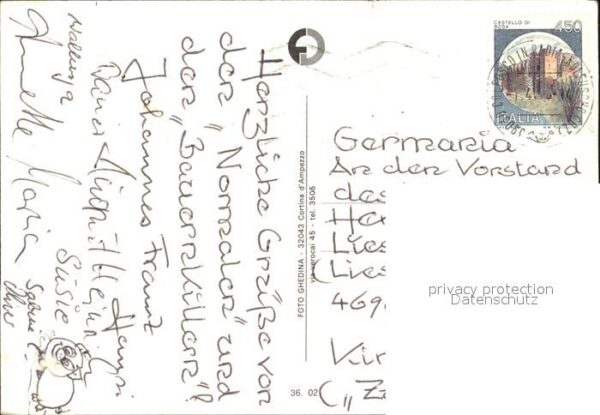 Herzliche Grüße von
den „Normalen" und
den „Bauernkillern"!
Johannes Franz
Hansi
Susie
Sabine
Oliver
Annette Maria
FOTO GHEDINA - 32043 Cortina d'Ampezzo
via verocai 45 - tel. 3505
36. 02
CASTELLO DI
450
ITALIA
Germania
An den Vorstand
des
He
Lies
(Lies
469
Kir
(„Z
privacy protection
Datenschutz